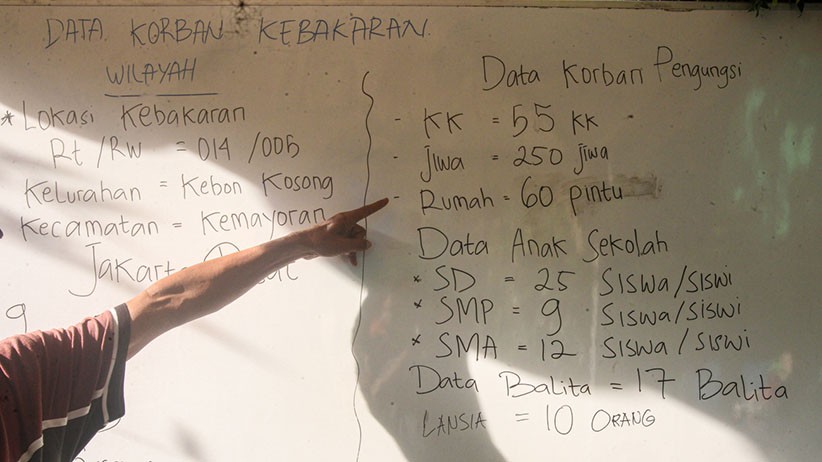 DATA KORBAN KEBAKARAN
WILAYAH
* Lokasi Kebakaran
Rt/RW = 014/005
Kelurahan = Kebon Kosong
Kecamatan = Kemayoran
Jakarta
9
Data Korban Pengungsi
- KK = 55 KK
- Jiwa = 250 Jiwa
- Rumah = 60 pintu
Data Anak Sekolah
* SD = 25 SISWA/SISWI
* SMP = 9 SISWA/SISWI
* SMA = 12 SISWA/SISWI
Data Balita = 17 Balita
LANSIA = 10 ORANG